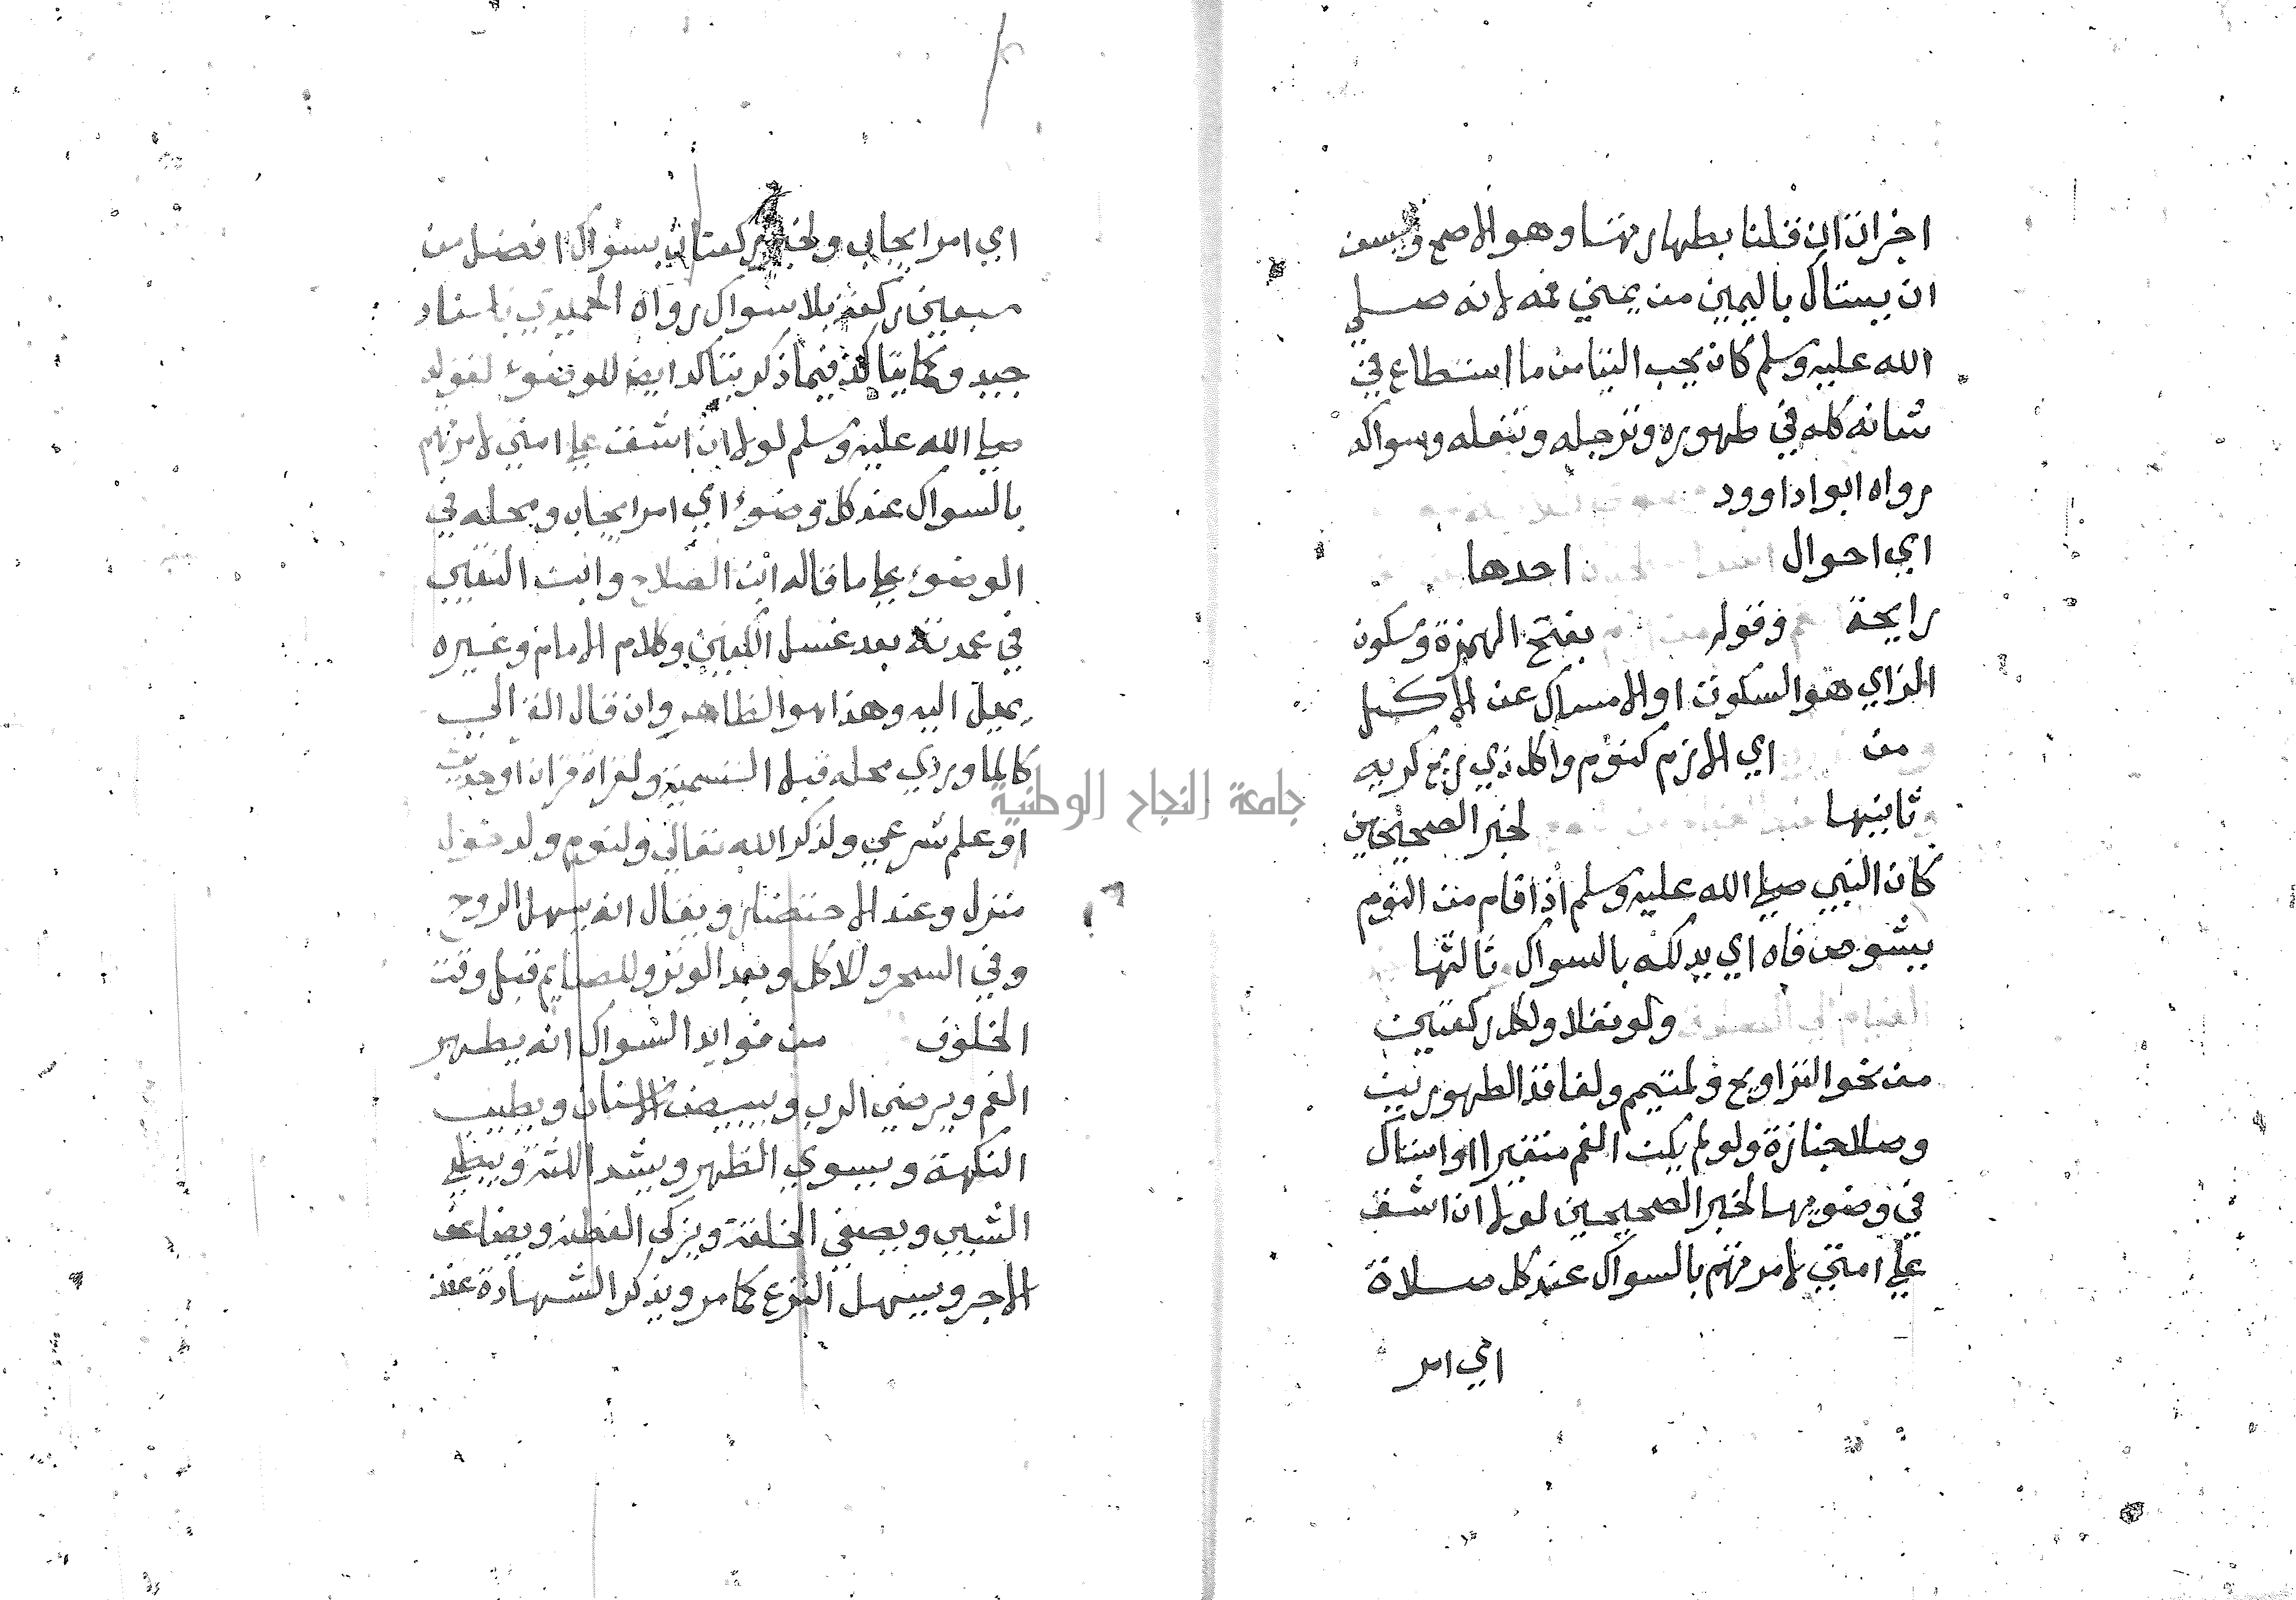 اخزان ان قلنا بطهارتها وهو الاصح ويسن
ان يستاك باليمين من يمني فمه لانه صلي
الله عليه وسلم كان يحب التيامن ما استطاع في
شانه كله في طهوره وترجله وتنعله وسواكه
رواه ابوا داوود
اي احوال احدها
رايحة وقوله بفتح الهمزة وسكون
الزاي هو السكوت او الامساك عن الاكل
من اي الازم كنوم واكل ذي ريح كريه
ثانيها لخبر الصحيحين
كان النبي صلي الله عليه وسلم اذا قام من النوم
يشوص فاه اي يدلكه بالسواك ثالثها
ولو نفلا ولكل ركعتين
من نحو التراويح ولمتيمم ولفاقد الطهورين
وصلا جنازة ولو لم يكن الفم متغيرا او استاك
في وضويها لخبر الصحيحين لولا ان اشق
علي امتي لامرتهم بالسواك عند كل صلاة
اي امر
اي امر ايجاب ولخبر ركعتان بسواك افضل من
سبعين ركعة بلا سواك رواه الحميدي باسناد
جيد وكما يتاكد فيما ذكر يتاكد ايضا للوضوء لقوله
صلي الله عليه وسلم لولا ان اشق علي امتي لامرتهم
بالسواك عند كل وضوء اي امر ايجاب ومحله في
الوضوء علي ما قاله ابن الصلاح وابن النقيب
في عمدته بعد غسل الكفين وكلام الامام وغيره
يميل اليه وهذا هو الظاهر وان قال الغزالي
كالماوردي محله قبل التسمية ولقراة قران او حديث
او علم شرعي ولذكر الله تعالي ولنوم ولدخول
منزل وعند الاحتضار ويقال انه يسهل الروح
وفي السحر وللاكل وبعد الوتر وللصايم قبل وقت
الخلوف من فوايد السواك انه يطهر
الفم ويرضي الرب ويبيض الاسنان ويطيب
النكهة ويسوي الظهر ويشد اللثة ويبطي
الشيب ويصفي الخلقة ويزكي الفطنه ويضاعف
الاجر ويسهل النزع كما مر ويذكر الشهادة عند
جامعة النجاح الوطنية